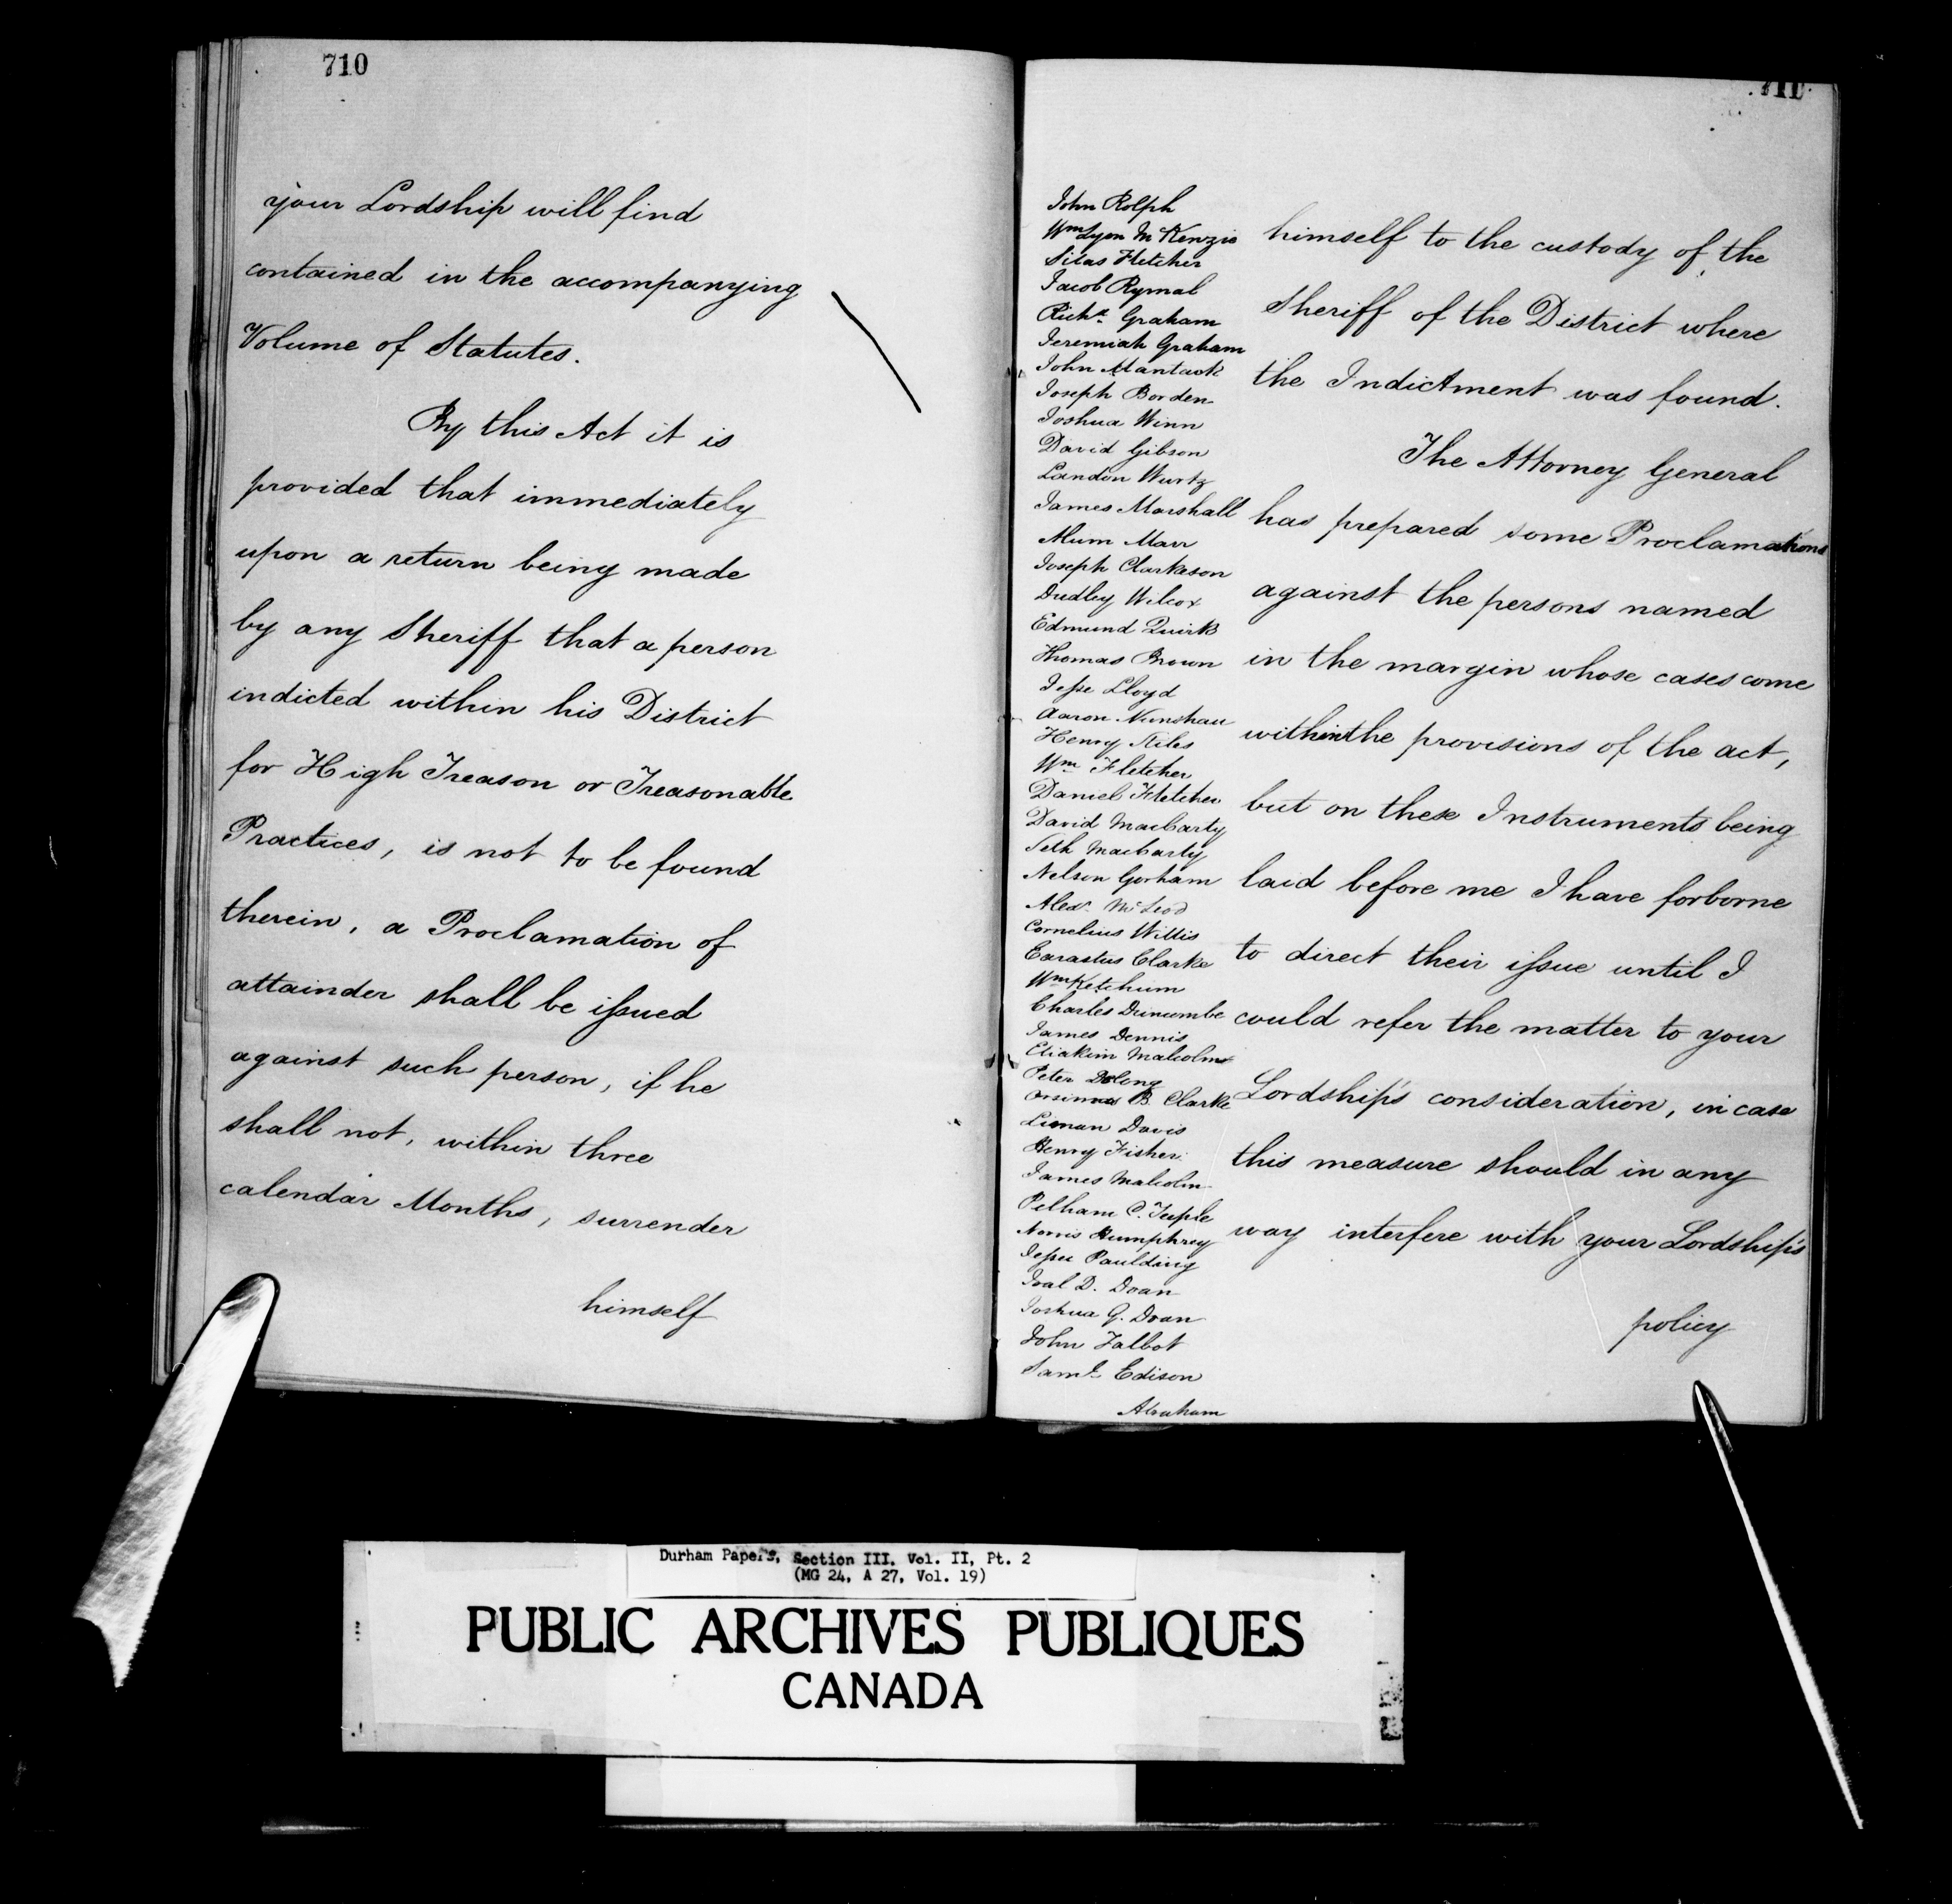 710
your Lordship will find
contained in the accompanying
Volume of Statutes.
By this Act it is
provided that immediately
upon a return being made
by any Sheriff that a person
indicted within his District
for High Treason or Treasonable
Practices, is not to be found
therein, a Proclamation of
attainder shall be issued
against such person, if he
shall not, within three
calendar Months, surrender
himself
711
John Rolph
Wm Lyon McKenzie
Silas Fletcher
Jacob Rymal
Richd. Graham
Jeremiah Graham
John Mantack
Joseph Borden
Joshua Winn
David Gibson
Landon Wurtz
James Marshall
Alum Marr
Joseph Clarkeson
Dudley Wilcox
Edmund Quirk
Thomas Brown
Jesse Lloyd
Aaron Munshau
Henry Stiles
Wm Fletcher
Daniel Fletcher
David MacCarty
Seth MacCarty
Nelson Gorham
Alexr. McLeod
Cornelius Willis
Earastus Clarke
Wm Ketchum
Charles Duncombe
James Dennis
Eliakim Malcolm
Peter Delong
B. Clarke
Liman Davis
Henry Fisher
James Malcolm
Pelham C. Teeple
Norris Humphrey
Jesse Paulding
Joal D. Doan
Joshua G. Doan
John Talbot
Saml. Edison
Abraham
himself to the custody of the
Sheriff of the District where
the Indictment was found.
The Attorney General
has prepared some Proclamations
against the persons named
in the margin whose cases come
within the provisions of the act,
but on these Instruments being
laid before me I have forborne
to direct their issue until I
could refer the matter to your
Lordship's consideration, in case
this measure should in any
way interfere with your Lordship's
policy
Durham Papers, Section III, Vol. II, Pt. 2
(MG 24, A 27, Vol. 19)
PUBLIC ARCHIVES PUBLIQUES
CANADA